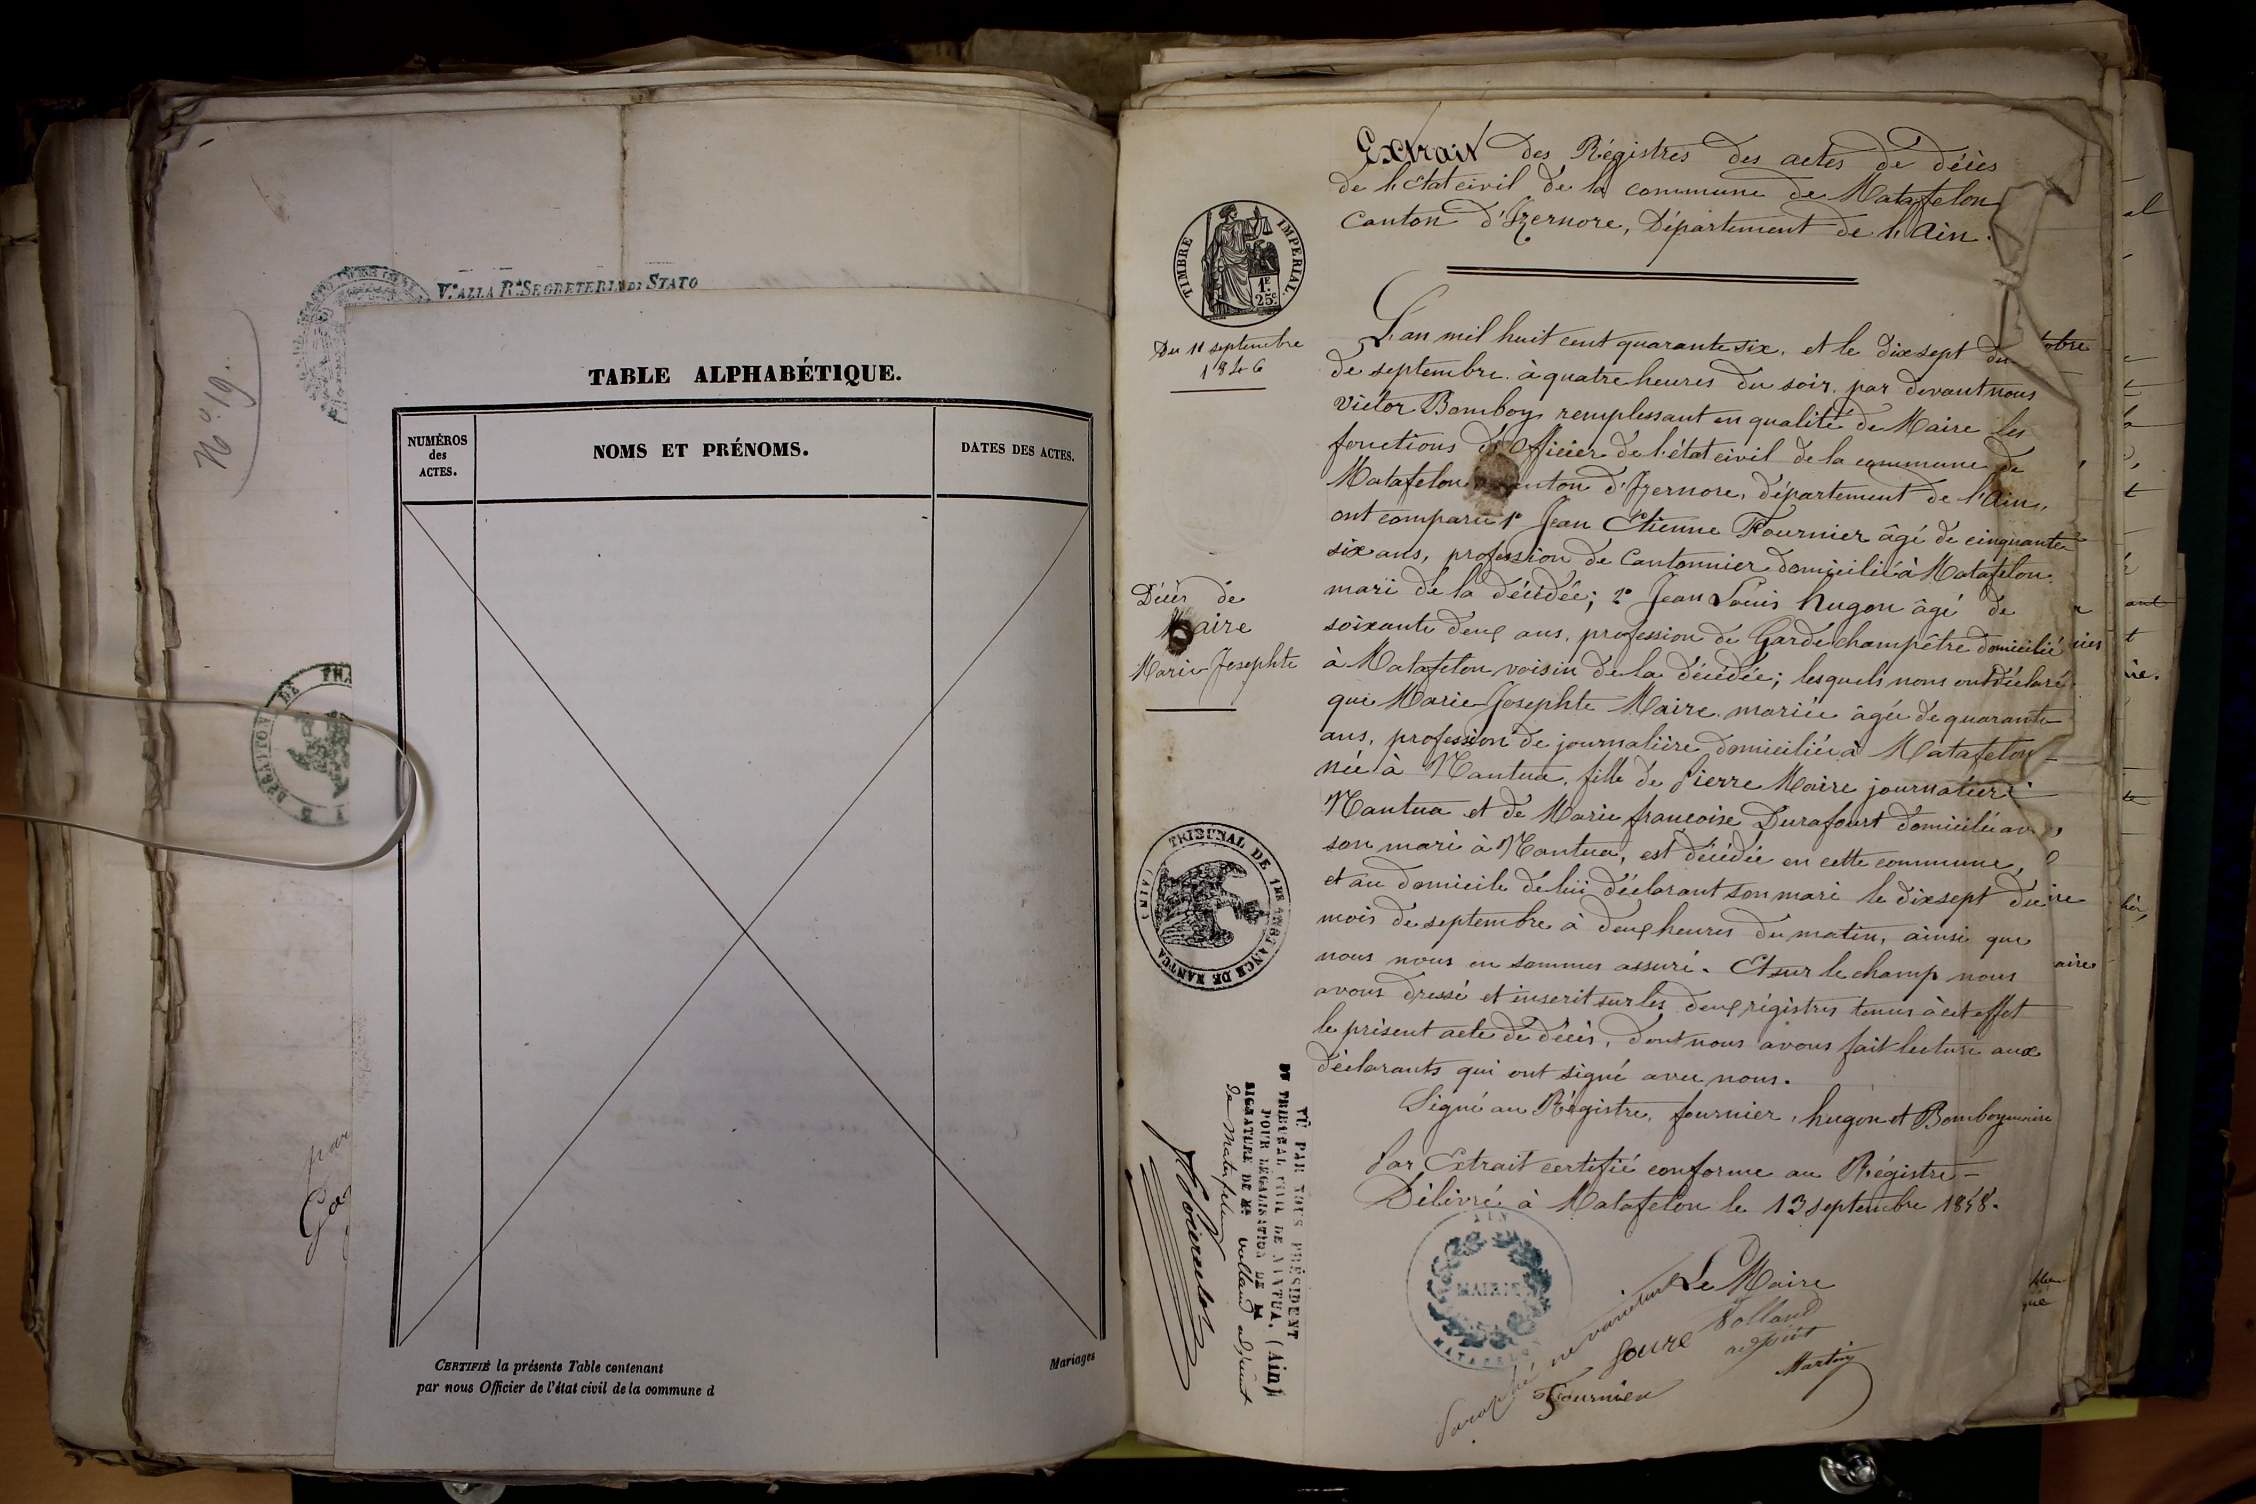 N° 19.
Vo ALLA Ra SEGRETERIA DI STATO
TABLE ALPHABÉTIQUE.
NUMÉROS
des
ACTES.
NOMS ET PRÉNOMS.
DATES DES ACTES.
CERTIFIÉ la présente Table contenant
par nous Officier de l'état civil de la commune d
Mariages
Extrait des Régistres des actes de décès
de l'Etat civil de la commune de Matafelon
canton d'Izernore, Département de l'Ain.
TIMBRE IMPERIAL
1F.
25c.
septembre
1846
L'an mil huit cent quarante six, et le dix sept du
de septembre à quatre heures du soir, par devant nous
Victor Bomboy remplessant en qualité de Maire les
fonctions d'Officier de l'état civil de la commune de
Matafelon canton d'Izernore, département de l'Ain,
ont comparu 1° Jean Etienne Fournier âgé de cinquante
six ans, profession de Cantonnier domicilié à Matafelon
mari de la décédée; 2° Jean Louis hugon âgé de
soixante deux ans, profession de Garde champêtre domicilié
à Matafelon voisin de la décédée; lesquels nous ont déclaré
que Marie Josephte Maire mariée âgée de quarante
ans, profession de journalière domiciliée à Matafelon
née à Nantua, fille de Pierre Maire journalier à
Nantua et de Marie francoise Durafourt domiciliée
son mari à Nantua, est décédée en cette commune,
et au domicile de lui déclarant son mari le dix sept du
mois de septembre à deux heures du matin, ainsi que
nous nous en sommes assuré. Et sur le champ nous
avons dressé et inscrit sur les deux régistres tenus à cet effet
le présent acte de décès, dont nous avons fait lecture aux
déclarants qui ont signé avec nous.
Signé au Régistre, fournier, hugon et Bomboy maire
Par Extrait certifié conforme au Régistre
Délivré à Matafelon le 13 septembre 1858.
Le Maire
Volland
adjoint
Fournier
Martin
MAIRIE
AIN
Décès de
Maire
Marie Josephte
TRIBUNAL DE 1ERE INSTANCE DE NANTUA (AIN)
VU PAR NOUS PRÉSIDENT
DU TRIBUNAL CIVIL DE NANTUA, (Ain)
POUR LÉGALISATION DE LA
SIGNATURE DE Mr Volland adjoint
de Matafelon